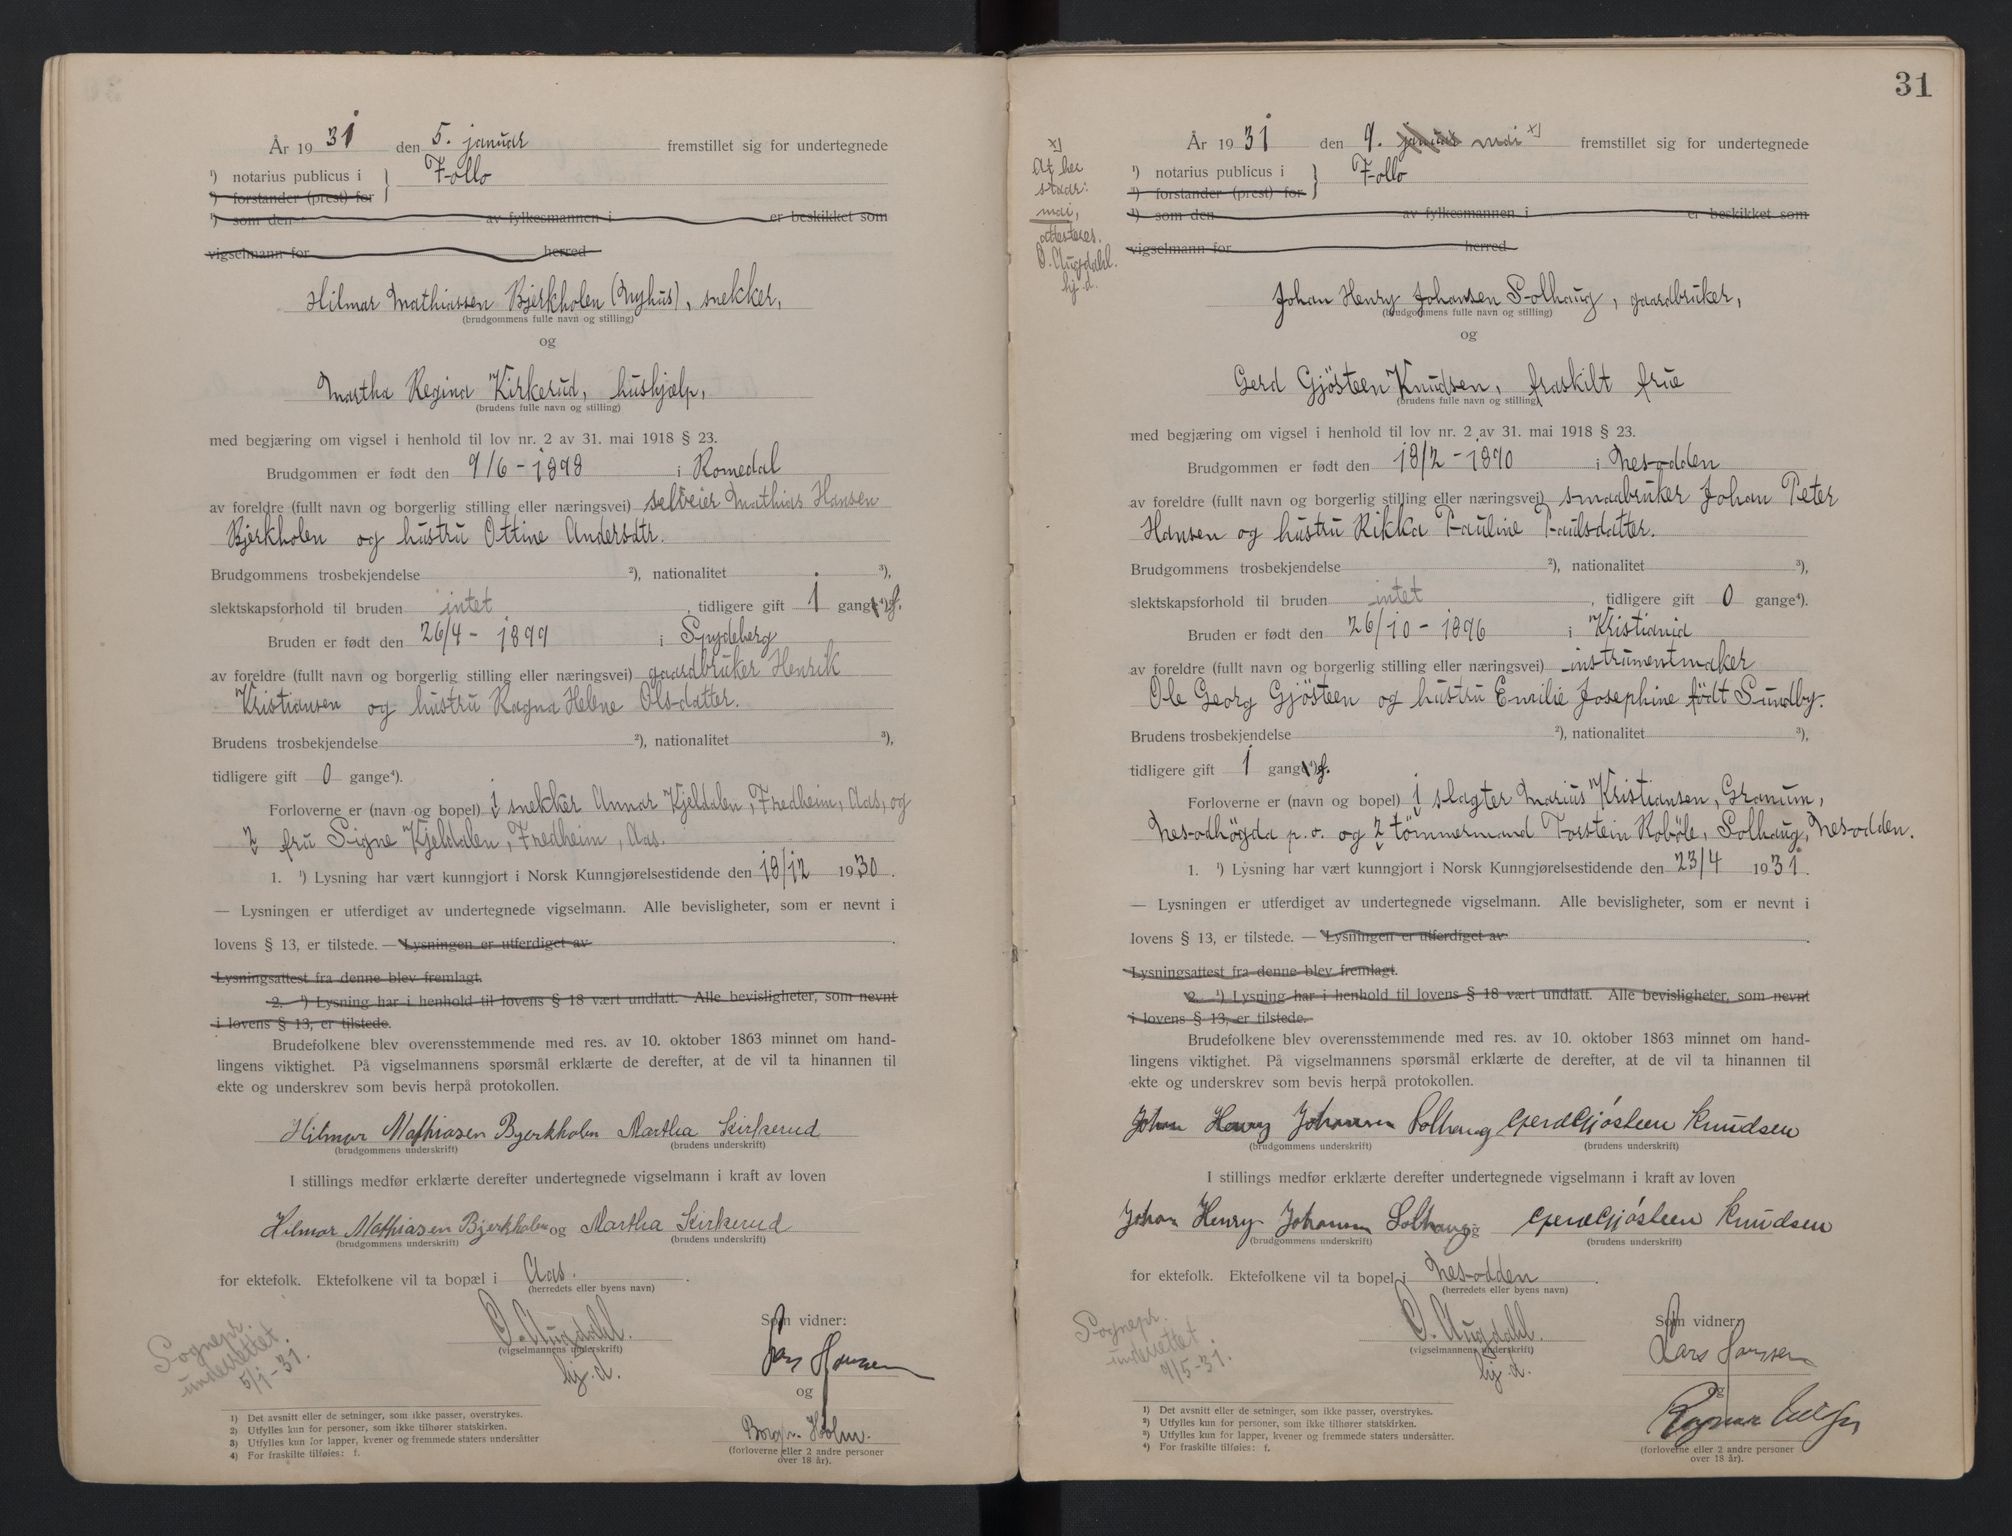 År 1931 den 5. januar fremstillet sig for undertegnede
¹) notarius publicus i } Follo
¹) forstander (prest) for
¹) som den av fylkesmannen i er beskikket som
vigselmann for herred
Hilmar Mathiassen Bjerkholen (Nyhus), snekker,
(brudgommens fulle navn og stilling)
og
Martha Regina Kirkerud, hushjælp,
(brudens fulle navn og stilling)
med begjæring om vigsel i henhold til lov nr. 2 av 31. mai 1918 § 23.
Brudgommen er født den 9/6 - 1898 i Romedal
av foreldre (fullt navn og borgerlig stilling eller næringsvei) selveier Mathias Hansen
Bjerkholen og hustru Ottine Andersdtr.
Brudgommens trosbekjendelse ²), nationalitet ³),
slektskapsforhold til bruden intet, tidligere gift 1 gang⁴) f.
Bruden er født den 26/4 - 1899 i Spydeberg
av foreldre (fullt navn og borgerlig stilling eller næringsvei) gaardbruker Henrik
Kristiansen og hustru Ragna Helene Olsdatter.
Brudens trosbekjendelse ²), nationalitet ³),
tidligere gift 0 gange⁴).
Forloverne er (navn og bopel) 1 snekker Annar Kjeldalen, Fredheim, Aas, og
2 fru Signe Kjeldalen, Fredheim, Aas.
1. ¹) Lysning har vært kunngjort i Norsk Kunngjørelsestidende den 18/12 1930.
— Lysningen er utferdiget av undertegnede vigselmann. Alle bevisligheter, som er nevnt i
lovens § 13, er tilstede. — Lysningen er utferdiget av
Lysningsattest fra denne blev fremlagt.
2. ¹) Lysning har i henhold til lovens § 18 vært undlatt. Alle bevisligheter, som nevnt
i lovens § 13, er tilstede.
Brudefolkene blev overensstemmende med res. av 10. oktober 1863 minnet om hand-
lingens viktighet. På vigselmannens spørsmål erklærte de derefter, at de vil ta hinannen til
ekte og underskrev som bevis herpå protokollen.
Hilmar Mathiasen Bjerkholen Martha Kirkerud
(brudgommens underskrift) (brudens underskrift)
I stillings medfør erklærte derefter undertegnede vigselmann i kraft av loven
Hilmar Mathiasen Bjerkholen og Martha Kirkerud
(brudgommens underskrift) (brudens underskrift)
for ektefolk. Ektefolkene vil ta bopæl i Aas.
(herredets eller byens navn)
O. Augdahl.
(vigselmannens underskrift)
hj.d.
Som vidner:
Lars Hansen
og
Holm.
(forloverne eller 2 andre personer
over 18 år).
Sognepr.
underrettet.
5/1-31.
1) Det avsnitt eller de setninger, som ikke passer, overstrykes.
2) Utfylles kun for personer, som ikke tilhører statskirken.
3) Utfylles kun for lapper, kvener og fremmede staters undersåtter
4) For fraskilte tilføies: f.
31
År 1931 den 9. januar mai x) fremstillet sig for undertegnede
¹) notarius publicus i } Follo
¹) forstander (prest) for
¹) som den av fylkesmannen i er beskikket som
vigselmann for herred
x)
At her
staar:
mai,
attesteres.
O. Augdahl.
hj.d.
Johan Henry Johansen Solhaug, gaardbruker,
(brudgommens fulle navn og stilling)
og
Gerd Gjösteen Knudsen, fraskilt frue
(brudens fulle navn og stilling)
med begjæring om vigsel i henhold til lov nr. 2 av 31. mai 1918 § 23.
Brudgommen er født den 18/2 - 1890 i Nesodden
av foreldre (fullt navn og borgerlig stilling eller næringsvei) smaabruker Johan Peter
Hansen og hustru Rikka Pauline Paulsdatter.
Brudgommens trosbekjendelse ²), nationalitet ³),
slektskapsforhold til bruden intet, tidligere gift 0 gange⁴).
Bruden er født den 26/10 - 1896 i Kristiania
av foreldre (fullt navn og borgerlig stilling eller næringsvei) instrumentmaker
Ole Georg Gjösteen og hustru Emilie Josephine født Sundby.
Brudens trosbekjendelse ²), nationalitet ³),
tidligere gift 1 gang⁴) f.
Forloverne er (navn og bopel) 1 slagter Marius Kristiansen, Granum,
Nesodhögda p.o. og 2 tömmermand Torstein Roböle, Solhaug, Nesodden.
1. ¹) Lysning har vært kunngjort i Norsk Kunngjørelsestidende den 23/4 1931.
— Lysningen er utferdiget av undertegnede vigselmann. Alle bevisligheter, som er nevnt i
lovens § 13, er tilstede. — Lysningen er utferdiget av
Lysningsattest fra denne blev fremlagt.
2. ¹) Lysning har i henhold til lovens § 18 vært undlatt. Alle bevisligheter, som nevnt
i lovens § 13, er tilstede.
Brudefolkene blev overensstemmende med res. av 10. oktober 1863 minnet om hand-
lingens viktighet. På vigselmannens spørsmål erklærte de derefter, at de vil ta hinannen til
ekte og underskrev som bevis herpå protokollen.
Johan Henry Johansen Solhaug Gerd Gjósteen Knudsen
(brudgommens underskrift) (brudens underskrift)
I stillings medfør erklærte derefter undertegnede vigselmann i kraft av loven
Johan Henry Johansen Solhaug og Gerd Gjósteen Knudsen
(brudgommens underskrift) (brudens underskrift)
for ektefolk. Ektefolkene vil ta bopel i Nesodden
(herredets eller byens navn)
O. Augdahl.
(vigselmannens underskrift)
hj.d.
Som vidner:
Lars Hansen
og
Ragnar
(forloverne eller 2 andre personer
over 18 år).
Sognepr.
underrettet.
9/5-31.
1) Det avsnitt eller de setninger, som ikke passer, overstrykes.
2) Utfylles kun for personer, som ikke tilhører statskirken.
3) Utfylles kun for lapper, kvener og fremmede staters undersåtter.
4) For fraskilte tilføies: f.